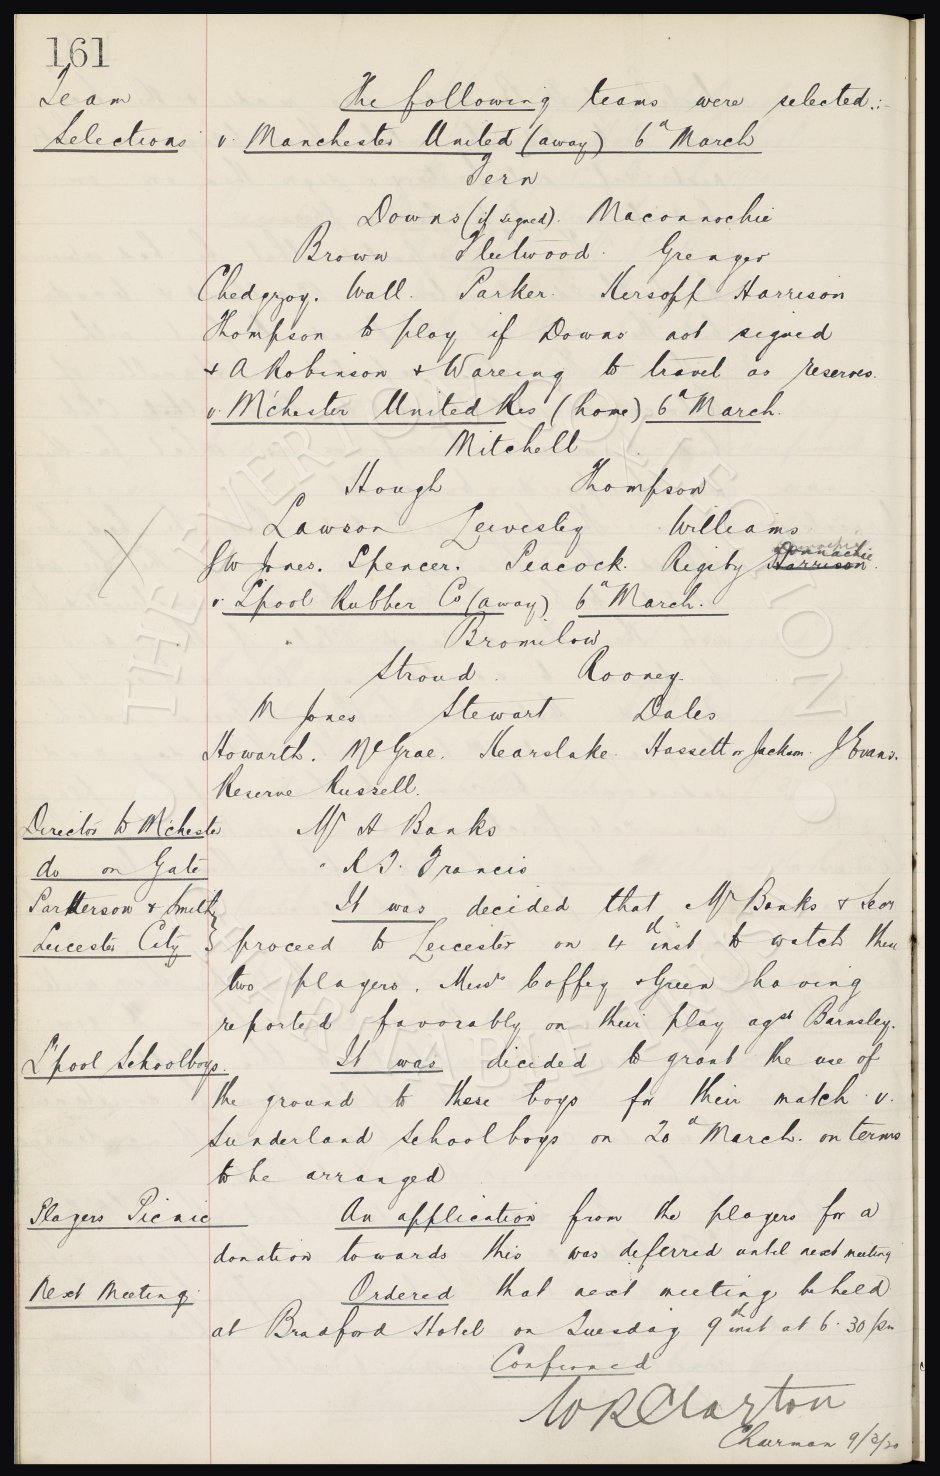 161
Team
Selections
The following teams were selected.:-
v. Manchester United (away) 6th March
Fern
Downs (if signed). Maconnochie
Brown Fleetwood. Grenyer
Chedgzoy. Wall. Parker. Kirsopp Harrison
Thompson to play if Downs not signed
+ A Robinson + Wareing to travel as reserves.
v. M'chester United Res (home) 6th March.
Mitchell
Hough Thompson
Lawson Leivesley Williams
J W Jones. Spencer. Peacock. Rigsby Donnachie Harrison.
v. L'pool Rubber Co (away) 6th March.
Bromilow
Stroud. Rooney.
R Jones Stewart Dales
Howarth. McGrae. Kearslake. Hassett or Jackson. J Evans.
Reserve Russell.
Director to M'chester Mr A Banks
do on Gate " R T. Francis
Patterson & Smith
Leicester City
It was decided that Mr Banks & Secy
proceed to Leicester on 4th inst to watch these
two players. Messrs Coffey & Green having
reported favorably on their play agst Barnsley.
L'pool Schoolboys.
It was decided to grant the use of
the ground to these boys for their match v.
Sunderland Schoolboys on 20th March. on terms
to be arranged
Players Picnic
An application from the players for a
donation towards this was deferred until next meeting
Next Meeting
Ordered that next meeting be held
at Bradford Hotel on Tuesday 9th inst at 6.30 pm
Confirmed
W R Clayton
Chairman 9/3/20
THE EVERTON COLLECTION
CHARITABLE TRUST